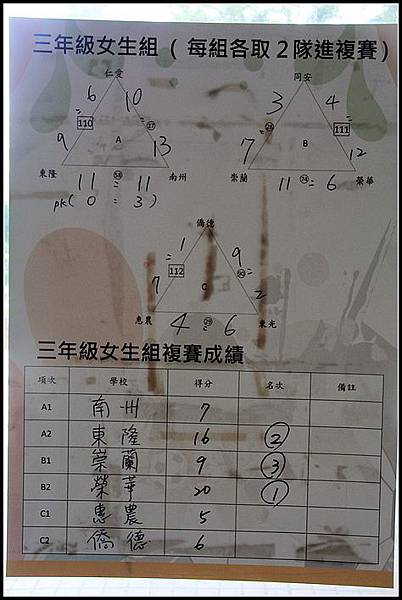 三年級女生組 ( 每組各取 2 隊進複賽 )
仁愛 同安
6 10 3 4
110 = = 27 = 28 111 =
9 A 13 7 B 12
東隆 11 = 11 南州 崇蘭 11 = 6 榮華
58 74
pk( 0 = 3 )
僑德
1 9
= 112 90 =
7 C 2
惠農 4 = 6 東光
29
三年級女生組複賽成績
項次 學校 得分 名次 備註
A1 南州 7
A2 東隆 16 ②
B1 崇蘭 9 ③
B2 榮華 20 ①
C1 惠農 5
C2 僑德 6